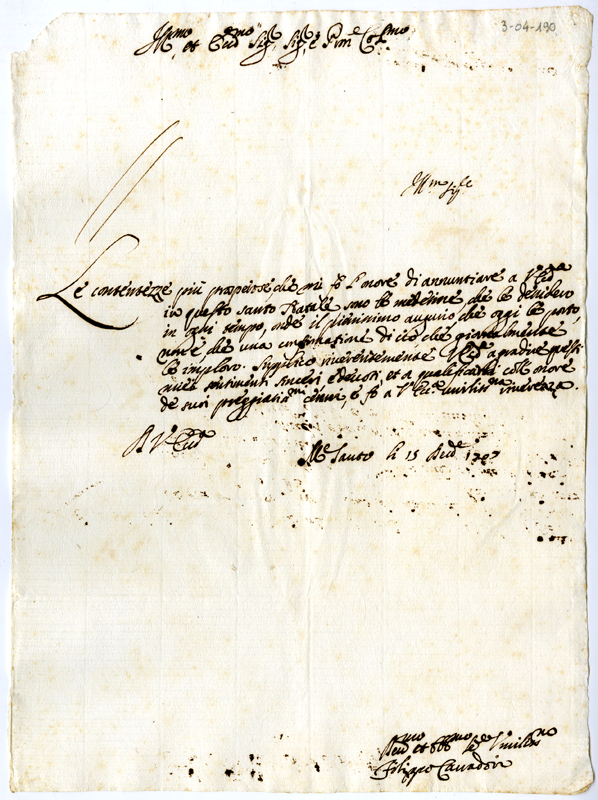 3-04-190
Ill.mo et Ecc.mo Sig.re Sig.re e P.ne Col.mo
Le contentezze più prosperose che mi fo l'onore di annuntiare a V. Ecc.za
in questo santo Natale sono le medesime che le desidero
in ogni tempo, onde il pienissimo augurio che oggi le porto,
non è che una confirmatione di ciò che giornalmente
le imploro. Supplico riverentemente V. Ecc.za a gradire questi
miei sentimenti sinceri e devoti, et a qualificarmi coll'onore
de suoi preggiatis.mi cenni, e fo a V. Ecc.za umiliss.ma riverenza.
Di V. Ecc.za
M.e Santo li 15 Dec.e
Dev.mo et Obb.mo Se.re Umiliss.mo
Filippo